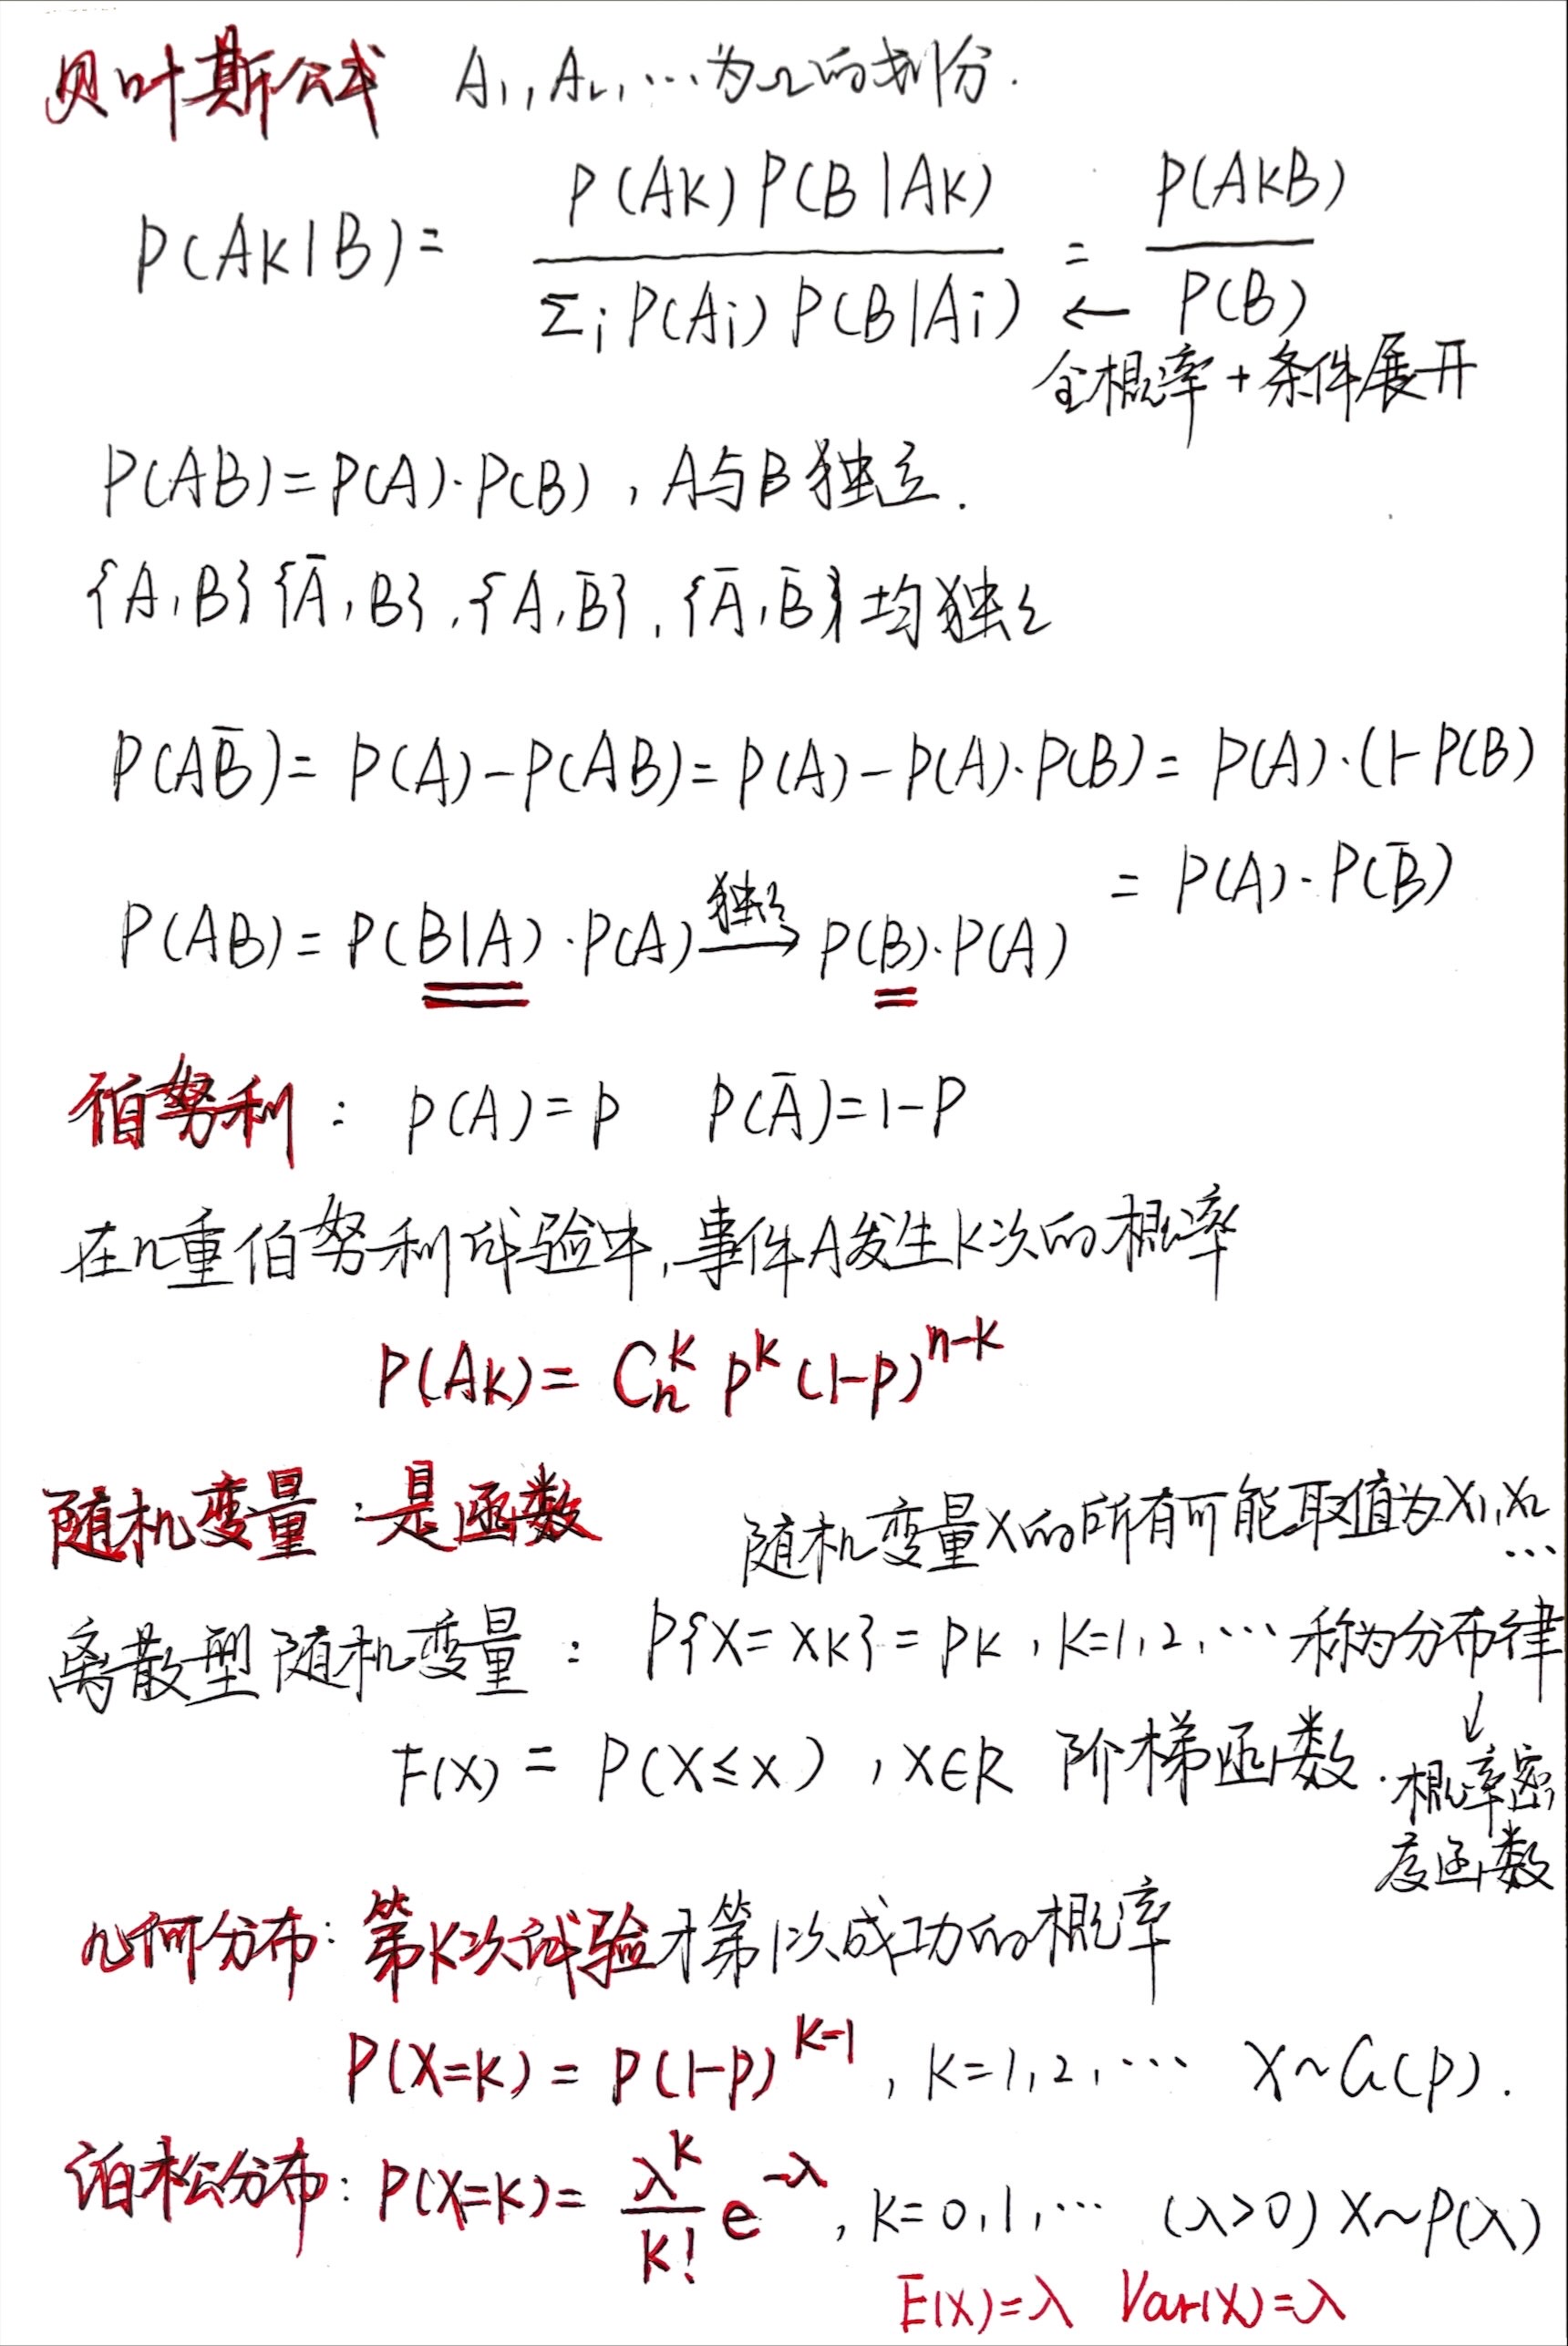 贝叶斯公式 A₁,A₂,…为Ω的划分.
P(Ak|B)= P(Ak)P(B|Ak) / Σi P(Ai)P(B|Ai) = P(AkB) / P(B)
← 全概率+条件展开
P(AB)=P(A)·P(B),A与B独立.
{A,B}{Ā,B},{A,B̄},{Ā,B̄}均独立
P(AB̄)=P(A)-P(AB)=P(A)-P(A)·P(B)=P(A)·(1-P(B)
=P(A)·P(B̄)
P(AB)=P(B|A)·P(A) 独立→ P(B)·P(A)
伯努利:P(A)=p P(Ā)=1-P
在n重伯努利试验中,事件A发生k次的概率
P(Ak)=Cₙᵏ pᵏ(1-p)ⁿ⁻ᵏ
随机变量:是函数 随机变量X的所有可能取值为X₁,X₂
…
离散型随机变量:P{X=xk}=pk,k=1,2,…称为分布律
↓
F(x)=P(X≤x),x∈R 阶梯函数.概率密
度函数
几何分布:第k次试验才第1次成功的概率
P(X=k)=p(1-p)ᵏ⁻¹,k=1,2,… X~G(p).
泊松分布:P(X=k)= λᵏ/k! e⁻λ,k=0,1,… (λ>0) X~P(λ)
E(X)=λ Var(X)=λ